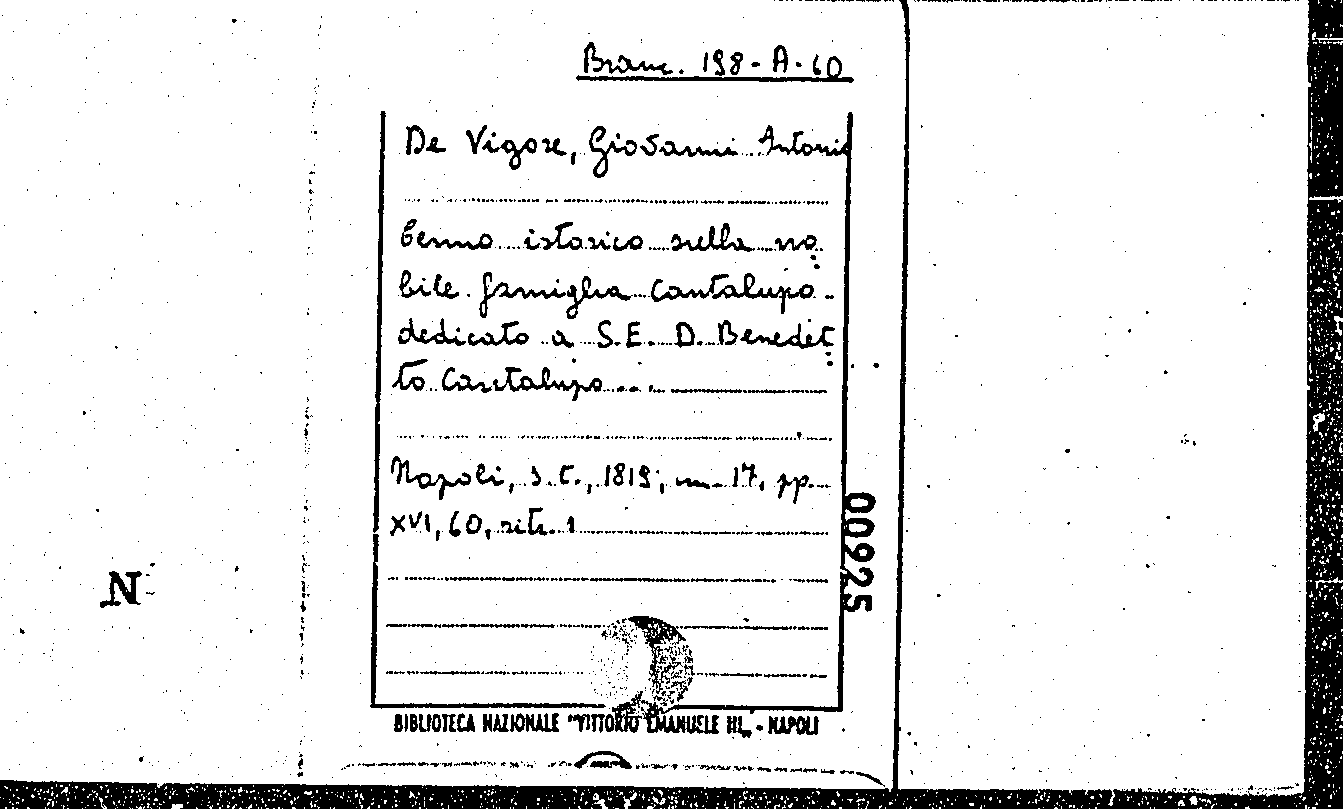 Branc. 198-A-60
De Vigore, Giovanni Antonio
Cenno istorico sulla no
bile famiglia Cantalupo
dedicato a S.E. D. Benedet
to Cantalupo...
Napoli, s.t., 1819; in 17, pp.
XVI, 60, ritr. 1
00925
N
BIBLIOTECA NAZIONALE "VITTORIO EMANUELE III„ - NAPOLI